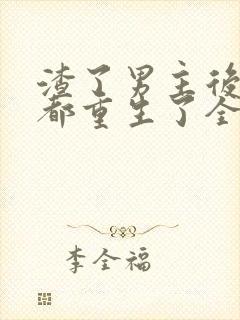 渣了男主後
都重生了全
李全福